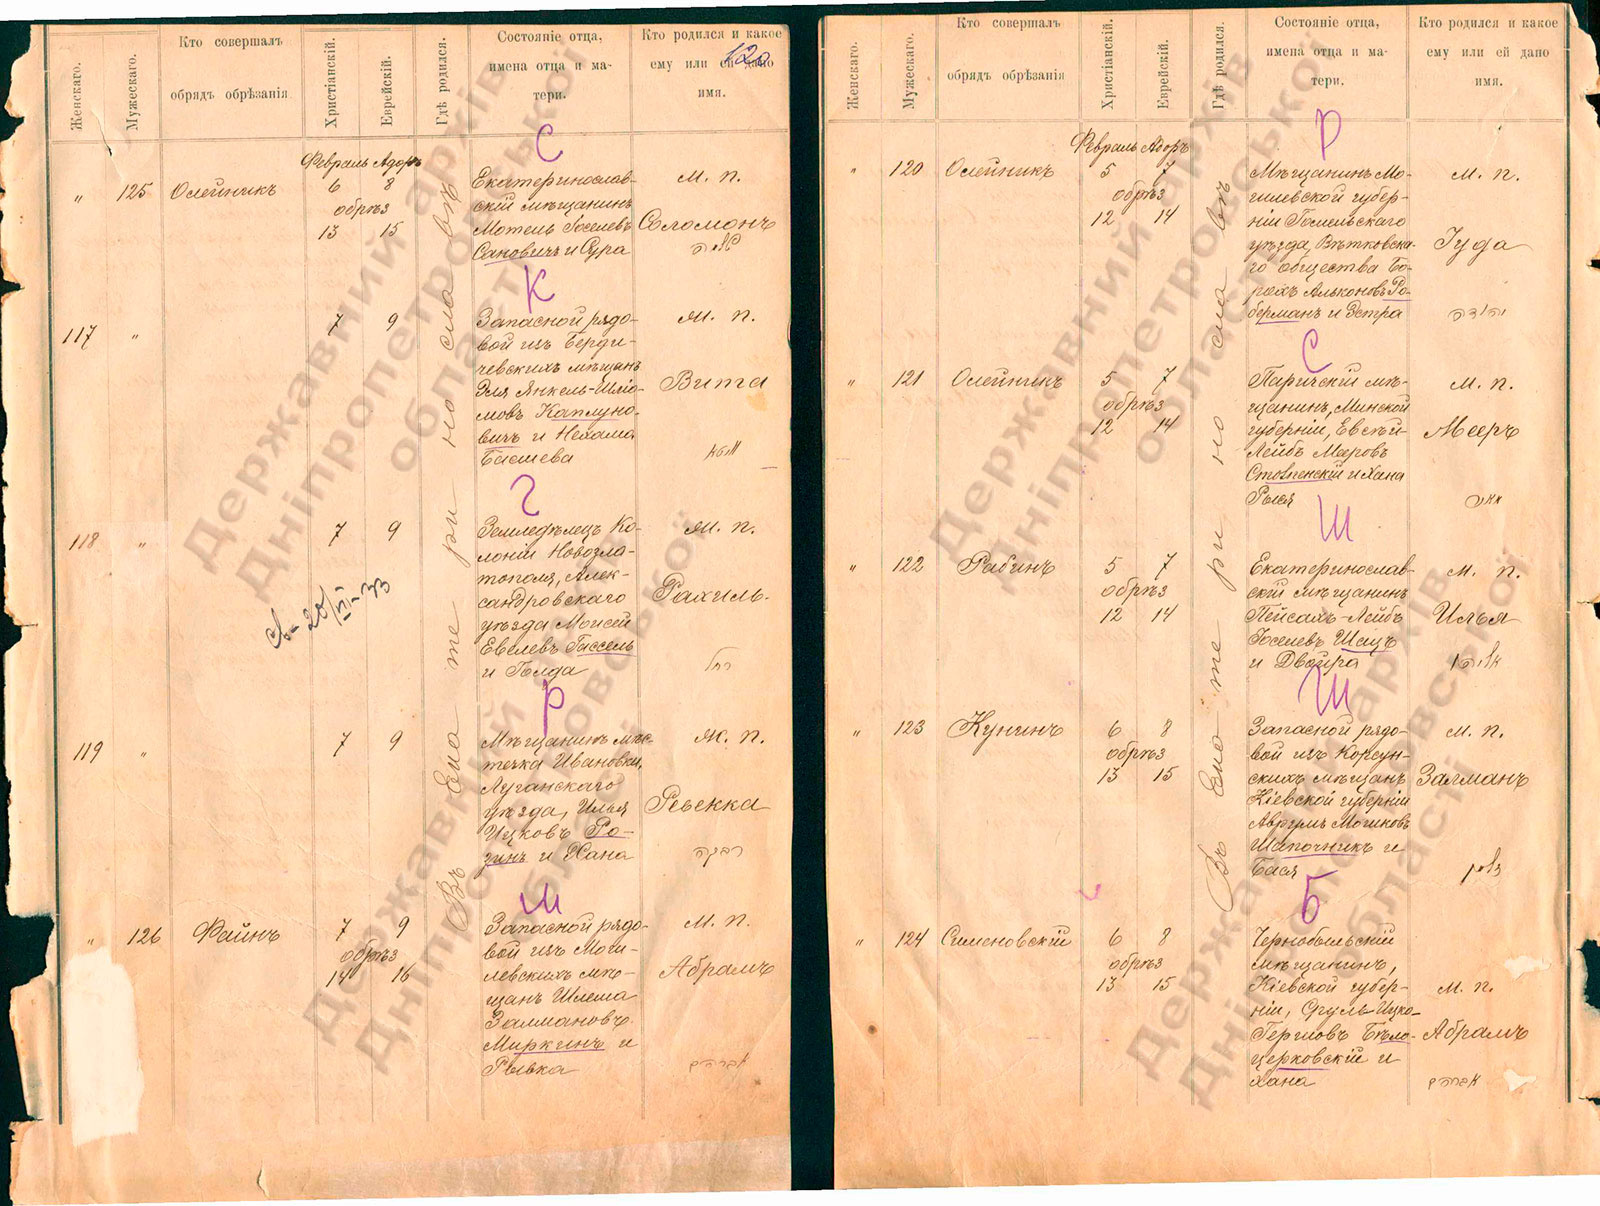 Женскаго.
Мужескаго.
Кто совершалъ
обрядъ обрѣзанія
Христіанскій.
Еврейскій.
Гдѣ родился.
Состояніе отца,
имена отца и ма-
тери.
Кто родился и какое
ему или ей дано
имя.
120
Въ Екатеринославѣ
С
Февраль Адоръ
" 125 Олейникъ 6 8
обрѣз
13 15
Екатеринослав-
скій мѣщанинъ
Мотель Іоселевъ
Сановичъ и Сура
м. п.
Соломонъ
К
117 " 7 9
Запасной рядо-
вой изъ Берди-
чевскихъ мѣщанъ
Эля Янкель-Шло-
мовъ Каплуно-
вичъ и Нехама
Басшева
ж. п.
Вита
Г
118 " 7 9
Земледѣлецъ Ко-
лоніи Новозла-
тополя, Алек-
сандровскаго
уѣзда Моисей
Евелевъ Гассель
и Голда
ж. п.
Рахиль.
רחל
Р
119 " 7 9
Мѣщанинъ мѣс-
течка Ивановки,
Луганскаго
уѣзда, Илья
Ицковъ Ро-
зинъ и Хана
ж. п.
Ревекка
רבקה
Ш
" 126 Файнъ 7 9
обрѣз
14 16
Запасной рядо-
вой изъ Моги-
левскихъ мѣ-
щанъ Шлема
Залмановъ
Миркинъ и
Рывка
м. п.
Абрамъ
אברהם
Женскаго.
Мужескаго.
Кто совершалъ
обрядъ обрѣзанія
Христіанскій.
Еврейскій.
Гдѣ родился.
Состояніе отца,
имена отца и ма-
тери.
Кто родился и какое
ему или ей дано
имя.
Въ Екатеринославѣ
Р
Февраль Адоръ
" 120 Олейникъ 5 7
обрѣз
12 14
Мѣщанинъ Мо-
гилевской губер-
ніи Гомельскаго
уѣзда, Вѣтковска-
го общества Бо-
рухъ Альконовъ Ро-
берманъ и Эстра
м. п.
Іуда
יהודה
С
" 121 Олейникъ 5 7
обрѣз
12 14
Паричскій мѣ-
щанинъ, Минской
губерніи, Евсѣй-
Лейбъ Мееровъ
Столпенскій и Хана
Рыся
м. п.
Мееръ
מאיר
Ш
" 122 Рабинъ 5 7
обрѣз
12 14
Екатеринослав-
скій мѣщанинъ
Пейсахъ-Лейбъ
Іоселевъ Шацъ
и Двойра
м. п.
Илья
אליהו
Ш
" 123 Кунинъ 6 8
обрѣз
13 15
Запасной рядо-
вой изъ Корсун-
скихъ мѣщанъ
Кіевской губерніи
Аврумъ Мошковъ
Шапочникъ и
Бася
м. п.
Залманъ
זלמן
Б
" 124 Сименовскій 6 8
обрѣз
13 15
Чернобыльскій
мѣщанинъ,
Кіевской губер-
ніи, Сруль-Ицко-
Гершовъ Бѣло-
церковскій и
Хана
м. п.
Абрамъ
אברהם
Державний архів
Дніпропетровської
області